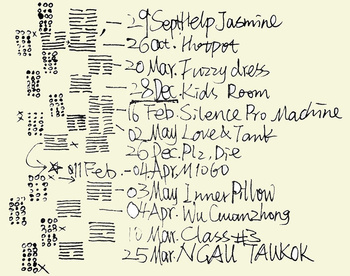 29 Sept Help Jasmine
26 Oct. Hotpot
20 Mar. Fuzzy dress
28 Dec. Kids Room
16 Feb. Silence Pro Machine
02 May Love & Tank
26 Dec. Plz. Die
11 Feb. - 04 Apr. M1OGO
03 May Inner Pillow
04 Apr. Wu Guanzhong
10 Mar. Class #3
25 Mar. NGAU TAUKOK